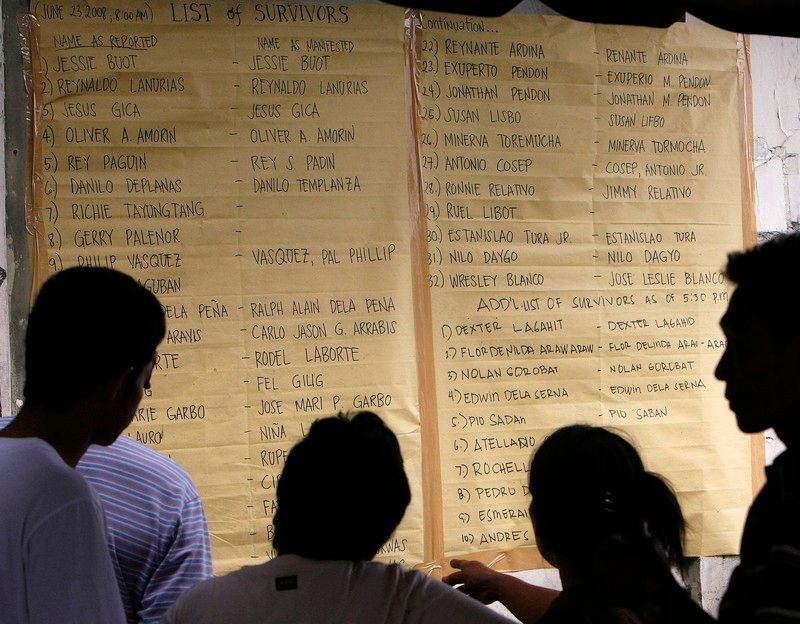 (JUNE 23, 2008, 8:00 AM) LIST of SURVIVORS
NAME AS REPORTED NAME AS MANIFESTED
1) JESSIE BUOT - JESSIE BUOT
2) REYNALDO LANURIAS - REYNALDO LANURIAS
3) JESUS GICA - JESUS GICA
4) OLIVER A. AMORIN - OLIVER A. AMORIN
5) REY PAGUIN - REY S. PADIN
6) DANILO DEPLANAS - DANILO TEMPLANZA
7) RICHIE TAYUNGTANG -
8) GERRY PALENOR -
9) PHILIP VASQUEZ - VASQUEZ, PAL PHILLIP
AGUBAN
DELA PEÑA - RALPH ALAIN DELA PEÑA
ARAVIS - CARLO JASON G. ARRABIS
RTE - RODEL LABORTE
G - FEL GILIG
RIE GARBO - JOSE MARI P. GARBO
LAURO - NIÑA
Continuation...
22) REYNANTE ARDINA - RENANTE ARDINA
23) EXUPERTO PENDON - EXUPERIO M. PENDON
24) JONATHAN PENDON - JONATHAN M. PENDON
25) SUSAN LISBO - SUSAN LIFBO
26) MINERVA TOREMUCHA - MINERVA TORMOCHA
27) ANTONIO COSEP - COSEP, ANTONIO JR.
28) RONNIE RELATIVO - JIMMY RELATIVO
29) RUEL LIBOT -
30) ESTANISLAO TURA JR. - ESTANISLAO TURA
31) NILO DAYGO - NILO DAGYO
32) WRESLEY BLANCO - JOSE LESLIE BLANCO
ADD'L LIST OF SURVIVORS AS OF 5:30 PM
1) DEXTER LAGAHIT - DEXTER LAGAHID
2) FLORDENILDA ARAWARAW - FLOR DELINDA ARAI-ARAI
3) NOLAN GOROBAT - NOLAN GOROBAT
4) EDWIN DELA SERNA - EDWIN DELA SERNA
5) PIO SADAN - PIO SABAN
6) ATELLADO
7) ROCHELL
8) PEDRO D
9) ESMERAL
10) ANDRES